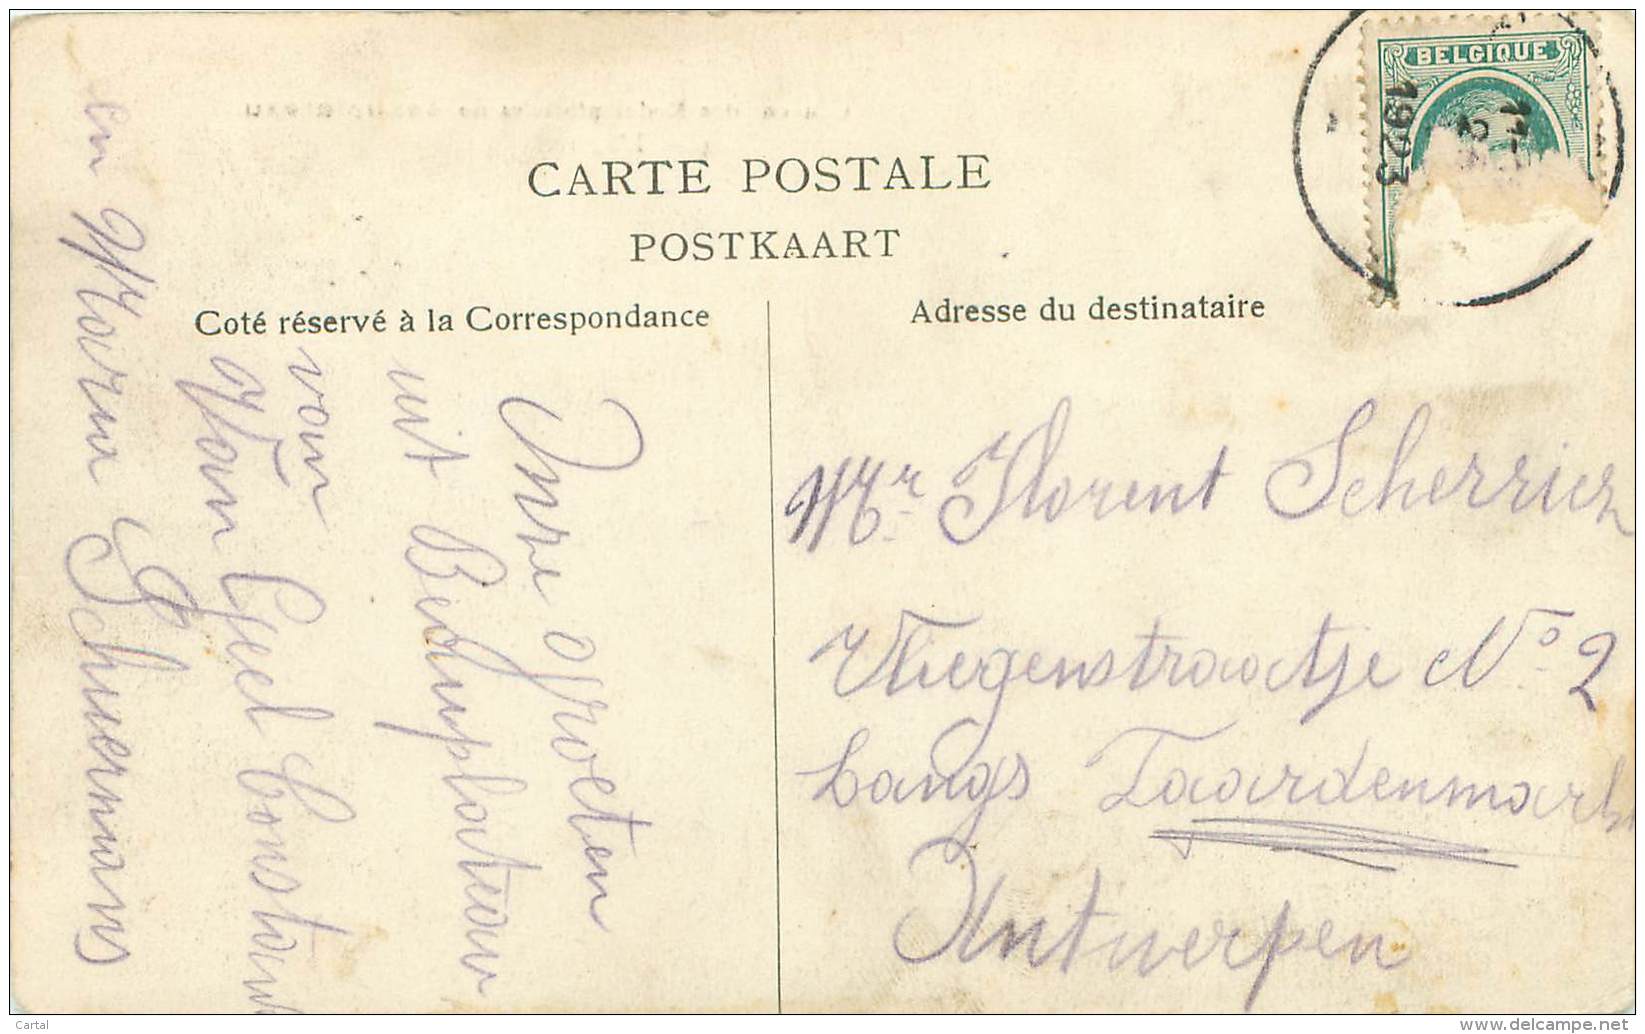 BELGIQUE
1923
CARTE POSTALE
POSTKAART
Coté réservé à la Correspondance
Adresse du destinataire
Onze Groeten
uit Beauplateau
van
Van Geel Constant
en Maria Schuermans
Mr Florent Scherrier
Vliegenstraatje No 2
Langs Paardenmarkt
Antwerpen
Cartal
delcampe.net